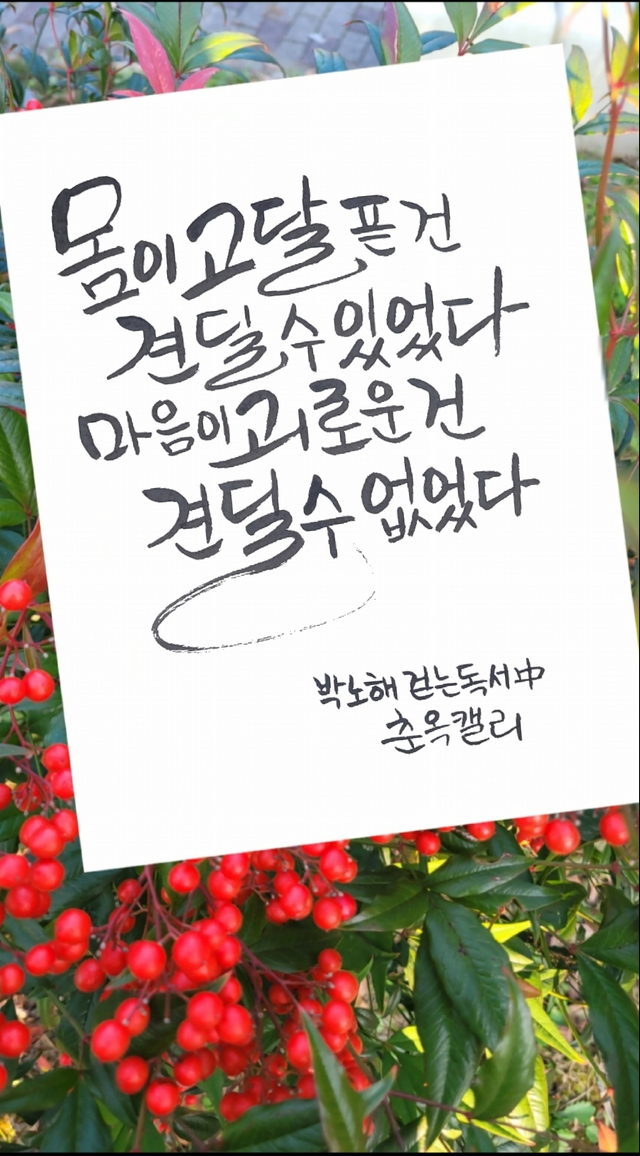 몸이 고달픈 건
견딜 수 있었다
마음이 괴로운 건
견딜 수 없었다
박노해 걷는독서 中
춘옥캘리